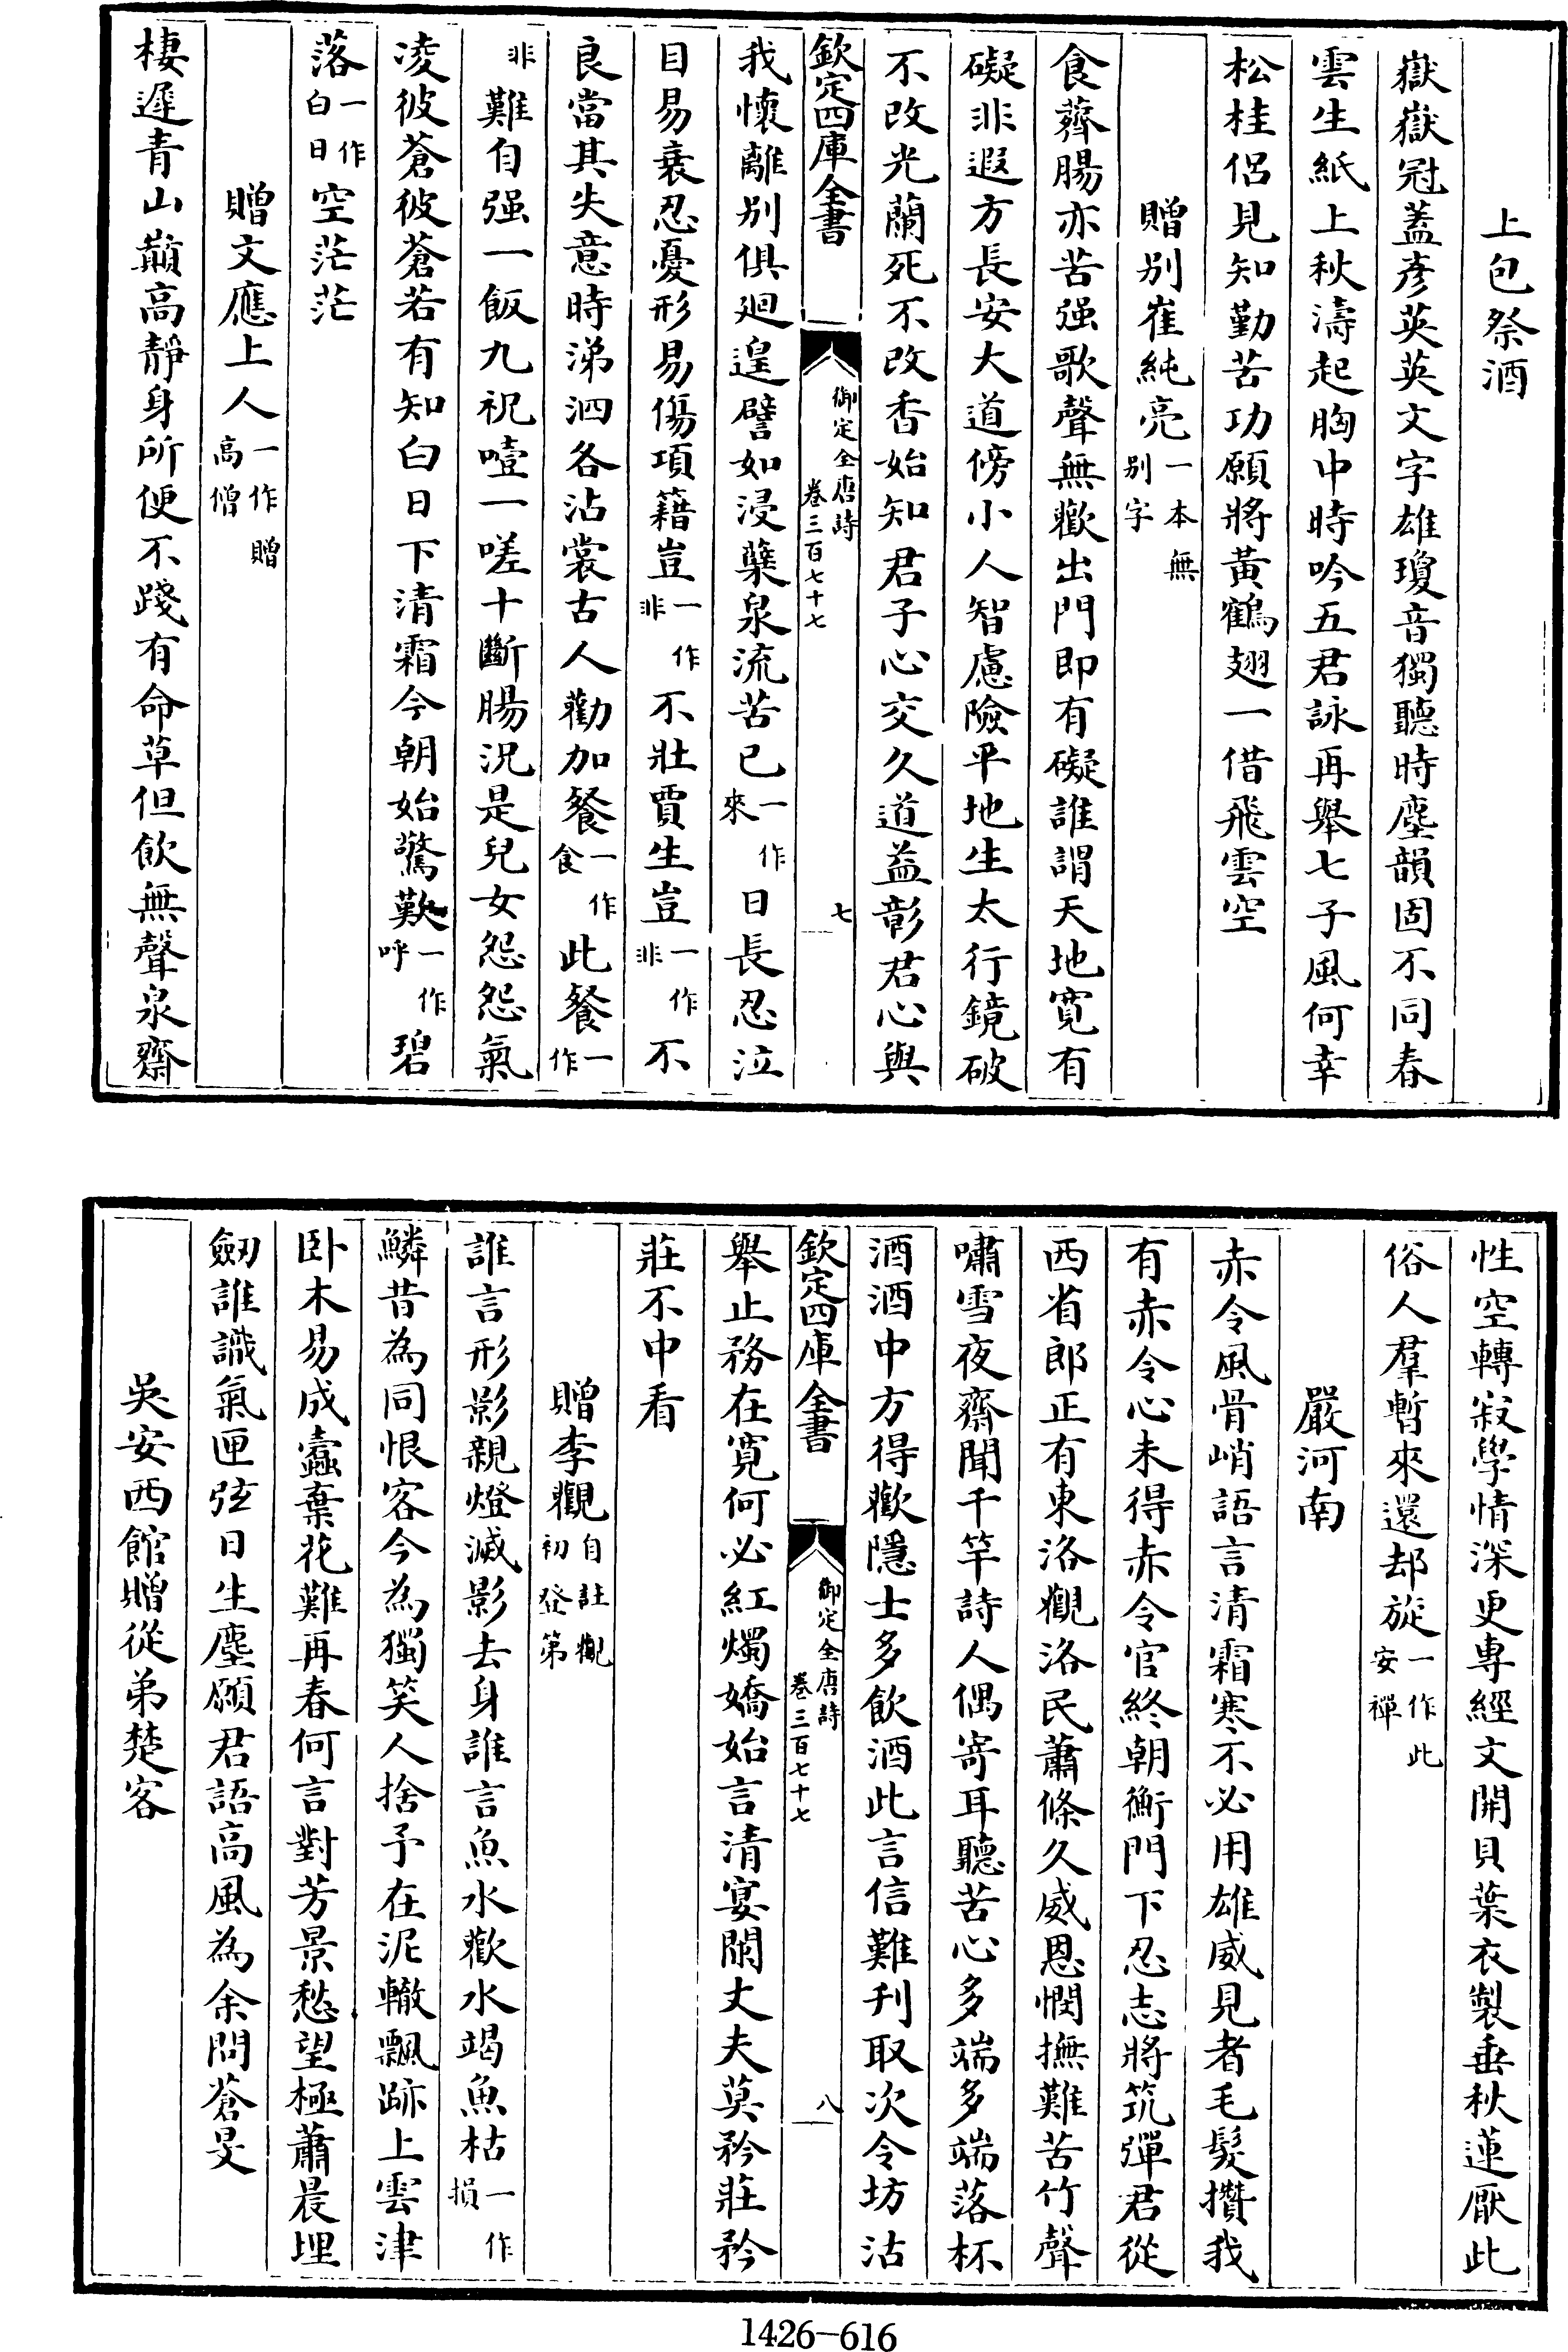 上包祭酒
嶽嶽冠蓋彥英英文字雄瓊音獨聽時塵韻固不同春
雲生紙上秋濤起胸中時吟五君詠再舉七子風何幸
松桂侶見知勤苦功願將黃鶴翅一借飛雲空
贈别崔純亮一本無别字
食薺腸亦苦强歌聲無歡出門即有礙誰謂天地寛有
礙非遐方長安大道傍小人智慮險平地生太行鏡破
不改光蘭死不改香始知君子心交久道益彰君心與
欽定四庫全書 御定全唐詩 卷三百七十七 七
我懷離别俱廻遑譬如浸蘖泉流苦已一作來日長忍泣
目易衰忍憂形易傷項籍豈一作非不壯賈生豈一作非不
良當其失意時涕泗各沾裳古人勸加餐一作食此餐一作
非難自强一飯九祝噎一嗟十斷腸況是兒女怨怨氣
凌彼蒼彼蒼若有知白日下清霜今朝始驚歎一作呼碧
落一作白日空茫茫
贈文應上人一作贈高僧
棲遲青山巔高靜身所便不踐有命草但飲無聲泉齋
性空轉寂學情深更專經文開貝葉衣製垂秋蓮厭此
俗人羣暫來還却旋一作此安禪
嚴河南
赤令風骨峭語言清霜寒不必用雄威見者毛髮攢我
有赤令心未得赤令官終朝衡門下忍志將筑彈君從
西省郎正有東洛觀洛民蕭條久威恩憫撫難苦竹聲
嘯雪夜齋聞千竿詩人偶寄耳聽苦心多端多端落杯
酒酒中方得歡隱士多飲酒此言信難刋取次令坊沽
欽定四庫全書 御定全唐詩 卷三百七十七 八
舉止務在寛何必紅燭嬌始言清宴闌丈夫莫矜莊矜
莊不中看
贈李觀自註觀初登第
誰言形影親燈滅影去身誰言魚水歡水竭魚枯一作損
鱗昔為同恨客今為獨笑人捨予在泥轍飄跡上雲津
卧木易成蠧棄花難再春何言對芳景愁望極蕭晨埋
劒誰識氣匣弦日生塵願君語高風為余問蒼旻
吳安西館贈從弟楚客
1426-616